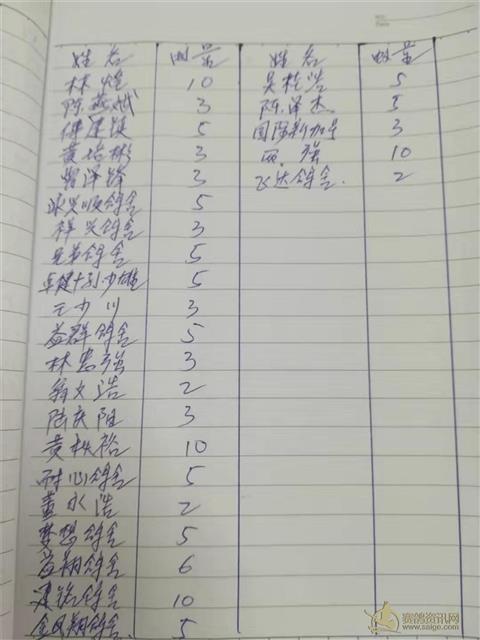 姓名 数量 姓名 数量
林煌 10 吴桂浩 5
陈燕斌 3 陈泽杰 5
5 国际新加号 3
黄培彬 3 强 10
曾泽锋 3 飞达鸽舍 2
冰兴顺鸽舍 5
祥兴鸽舍 3
兄弟鸽舍 5
卓健十刘少雄 5
王少川 3
益群鸽舍 5
林忠强 3
翁文浩 2
陆庆阳 3
黄秋裕 10
耐心鸽舍 5
董永浩 2
梦想鸽舍 5
益翔鸽舍 6
建铭鸽舍 10
金凤翔鸽舍 5
赛鸽资讯网
www.saige.com